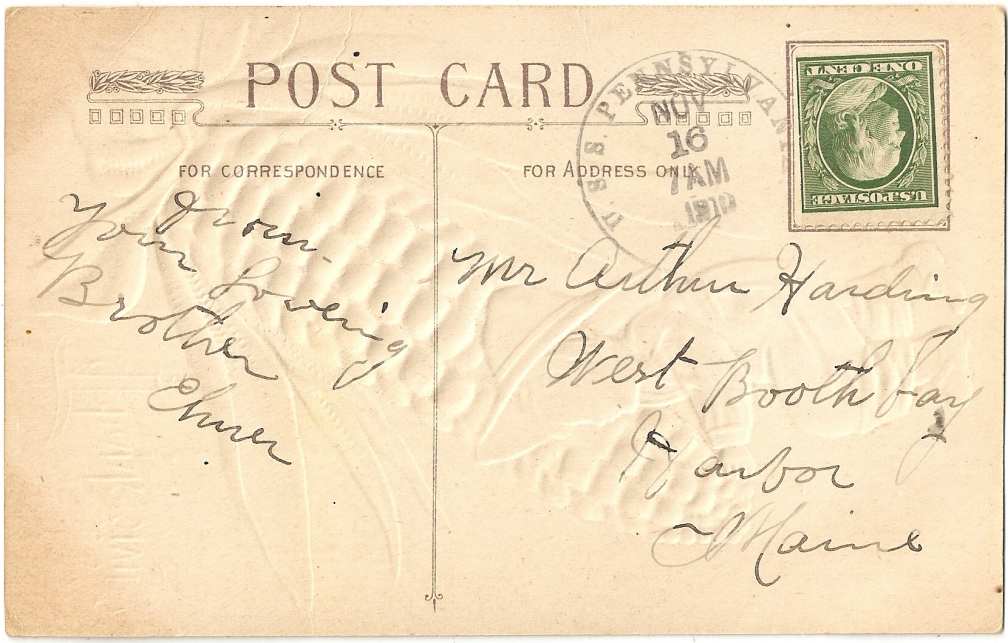 POST CARD
FOR CORRESPONDENCE
FOR ADDRESS ONLY
U.S.S. PENNSYLVANIA
NOV
16
7 AM
1910
U.S. POSTAGE
ONE CENT
From
Your Loveing
Brother
Elmer
Mr Arthur Harding
West Boothbay
Harbor
Maine